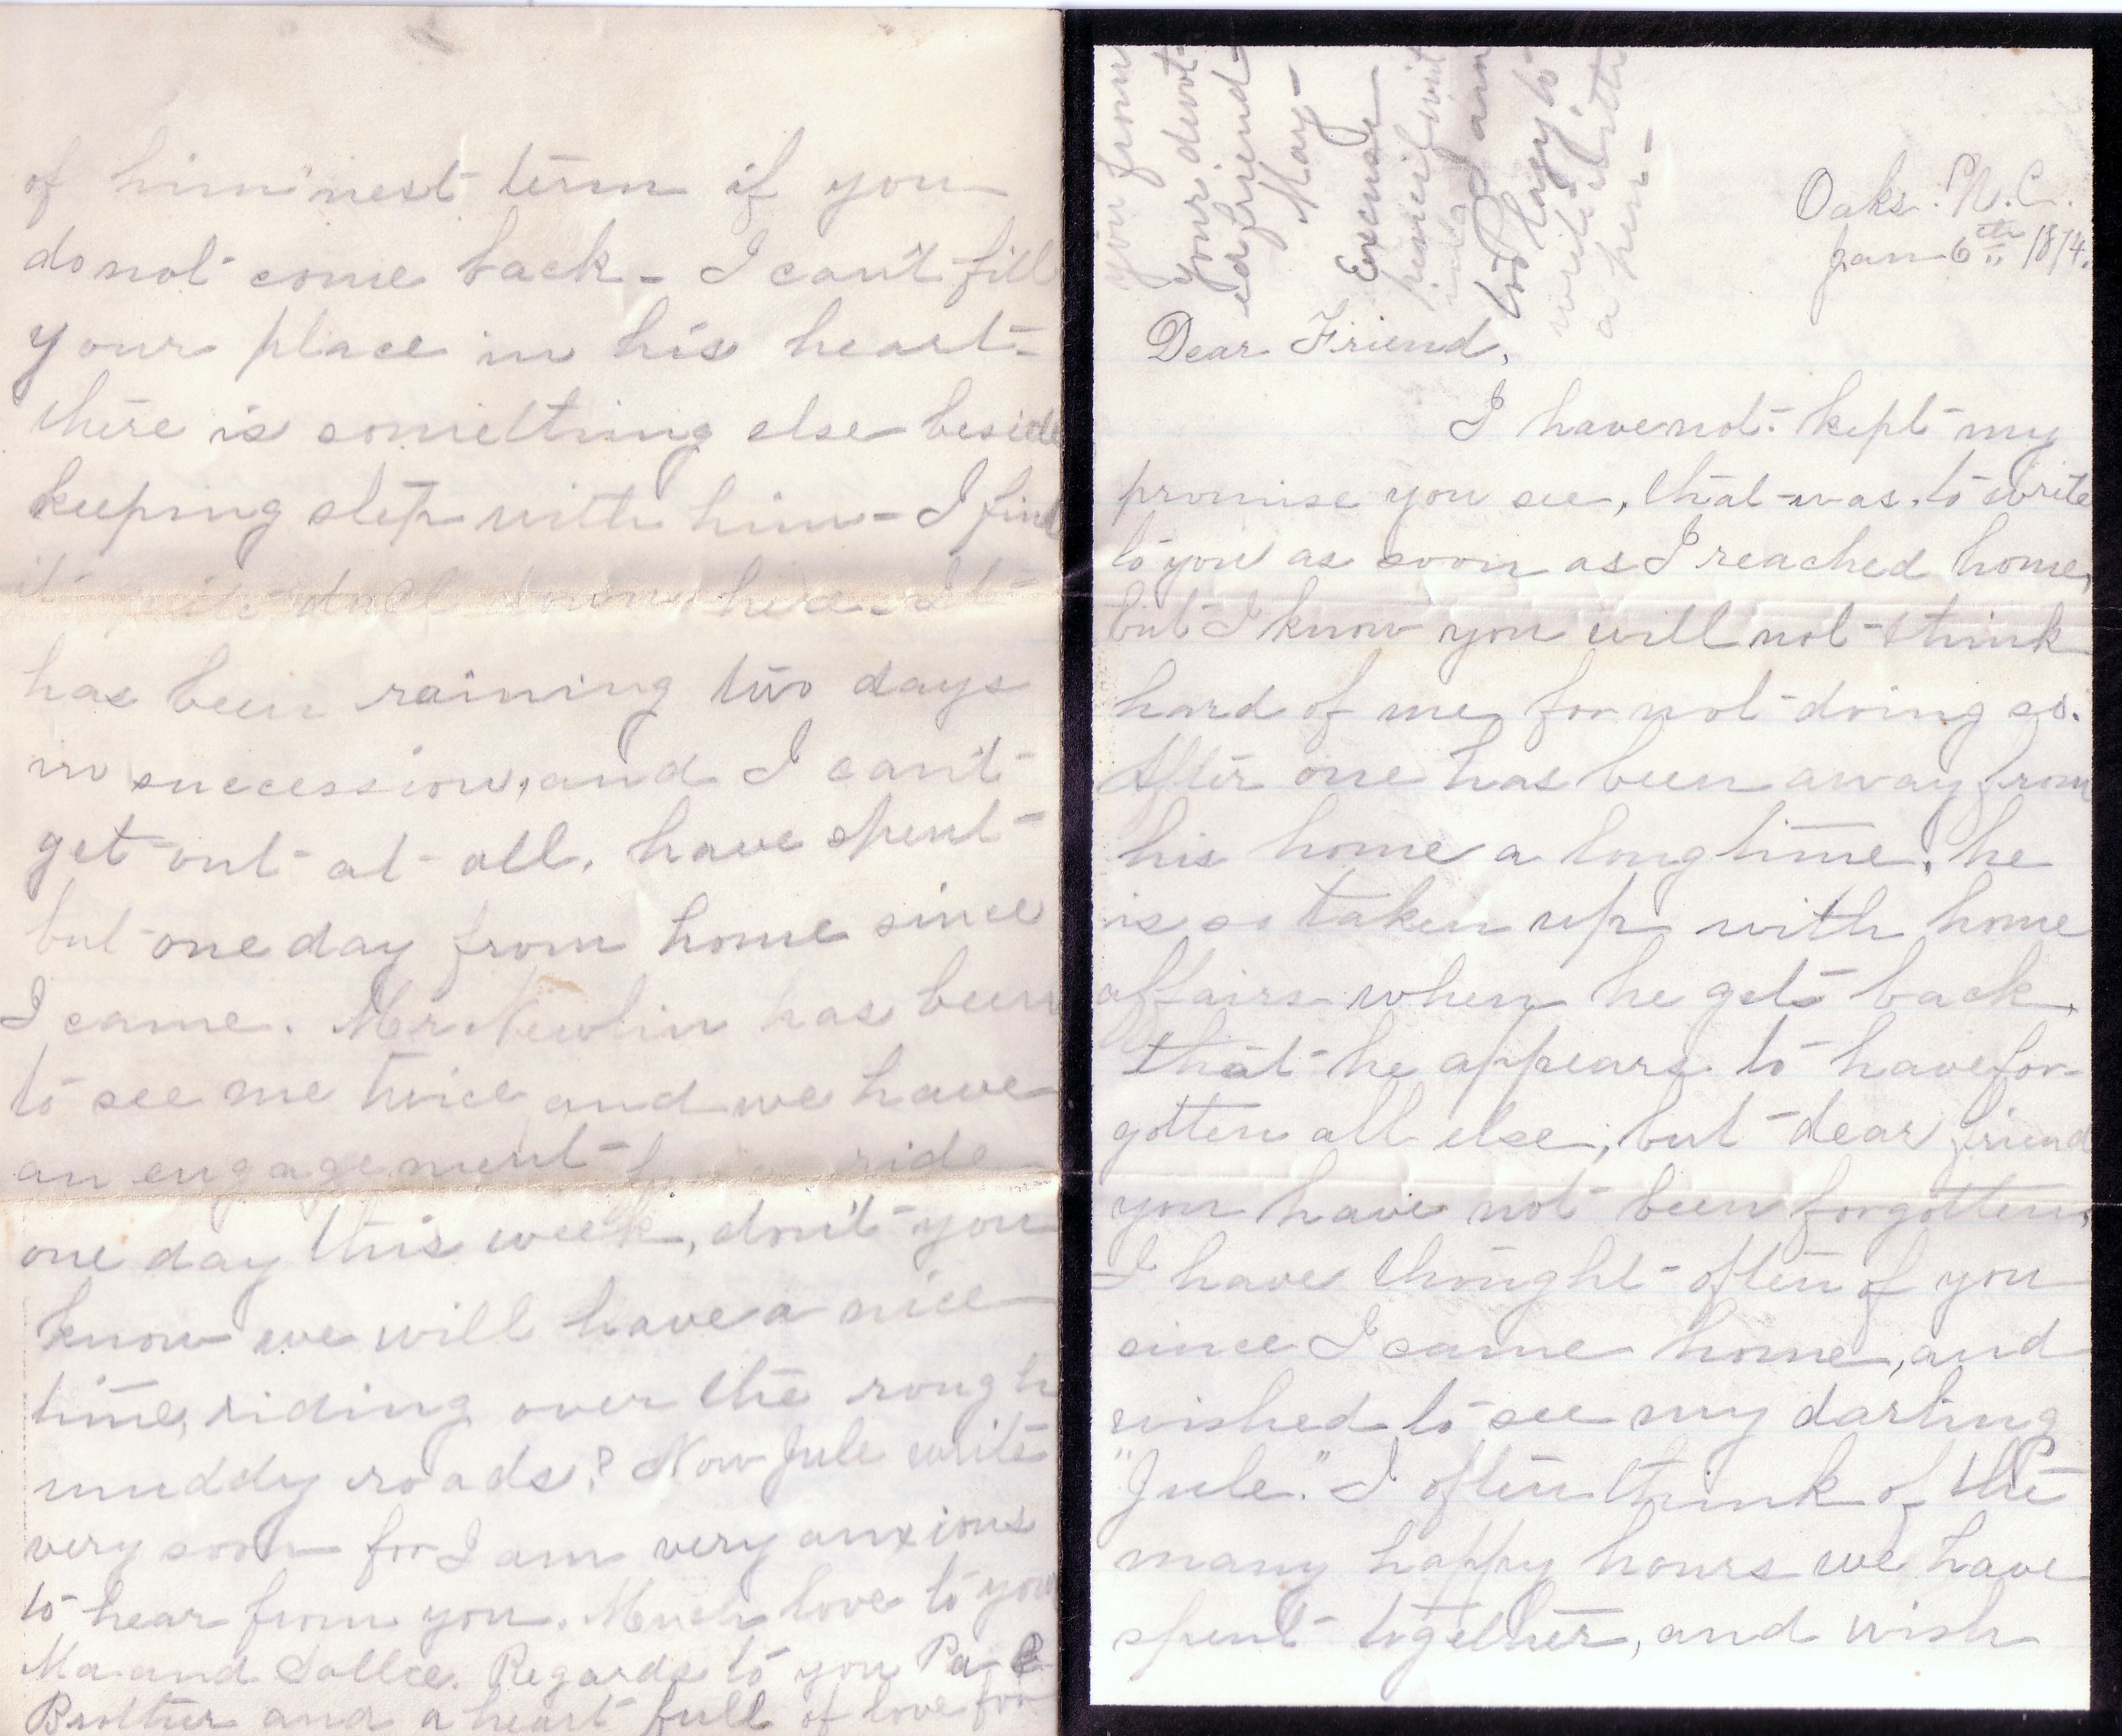 Oaks. N.C.
Jan 6th 1874.
Dear Friend,
I have not kept my
promise you see, that was, to write
to you as soon as I reached home,
but I know you will not think
hard of me, for not doing so.
After one has been away from
his home a long time, he
is so taken up with home
affairs when he gets back,
that he appears to have for-
gotten all else, but dear friend
you have not been forgotten,
I have thought often of you
since I came home, and
wished to see my darling
"Jule." I often think of the
many happy hours we have
spent together, and wish
of him nest term if you
do not come back - I can't fill
your place in his heart -
there is something else beside
keeping step with him - I find
it quite dull down here - It
has been raining two days
in succession, and I can't
get out at all, have spent
but one day from home since
I came. Mr Newlin has been
to see me twice and we have
an engagement for a ride
one day this week, don't you
know we will have a nice
time, riding over the rough
muddy roads? Now Jule write
very soon for I am very anxious
to hear from you. Much love to your
Ma and Sallie. Regards to you Pa &
Brother and a heart full of love for
you from
your devot-
ed friend -
May -
Excuse
pencil writ
I am
too lazy to
write with
a pen -